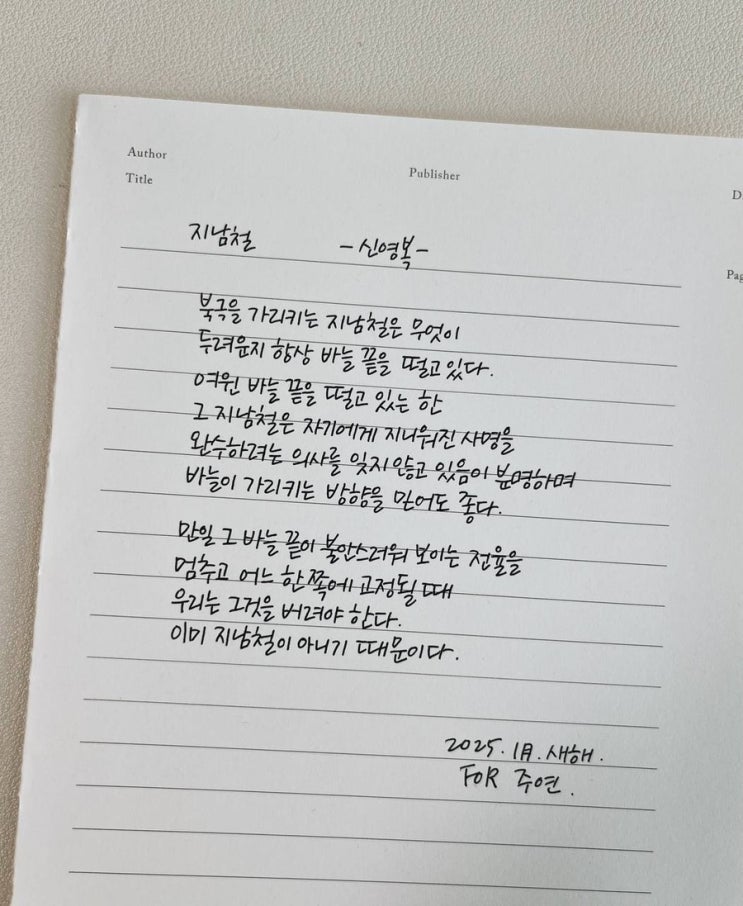 Author
Title
Publisher
지남철 -신영복-
북극을 가리키는 지남철은 무엇이
두려운지 항상 바늘 끝을 떨고있다.
여윈 바늘 끝을 떨고 있는 한
그 지남철은 자기에게 지니워진 사명을
완수하려는 의사를 잊지 않고 있음이 분명하며
바늘이 가리키는 방향을 믿어도 좋다.
만일 그 바늘 끝이 불안스러워 보이는 전율을
멈추고 어느 한쪽에 고정될 때
우리는 그것을 버려야 한다.
이미 지남철이 아니기 때문이다.
2025. 1月. 새해.
FOR 주연.